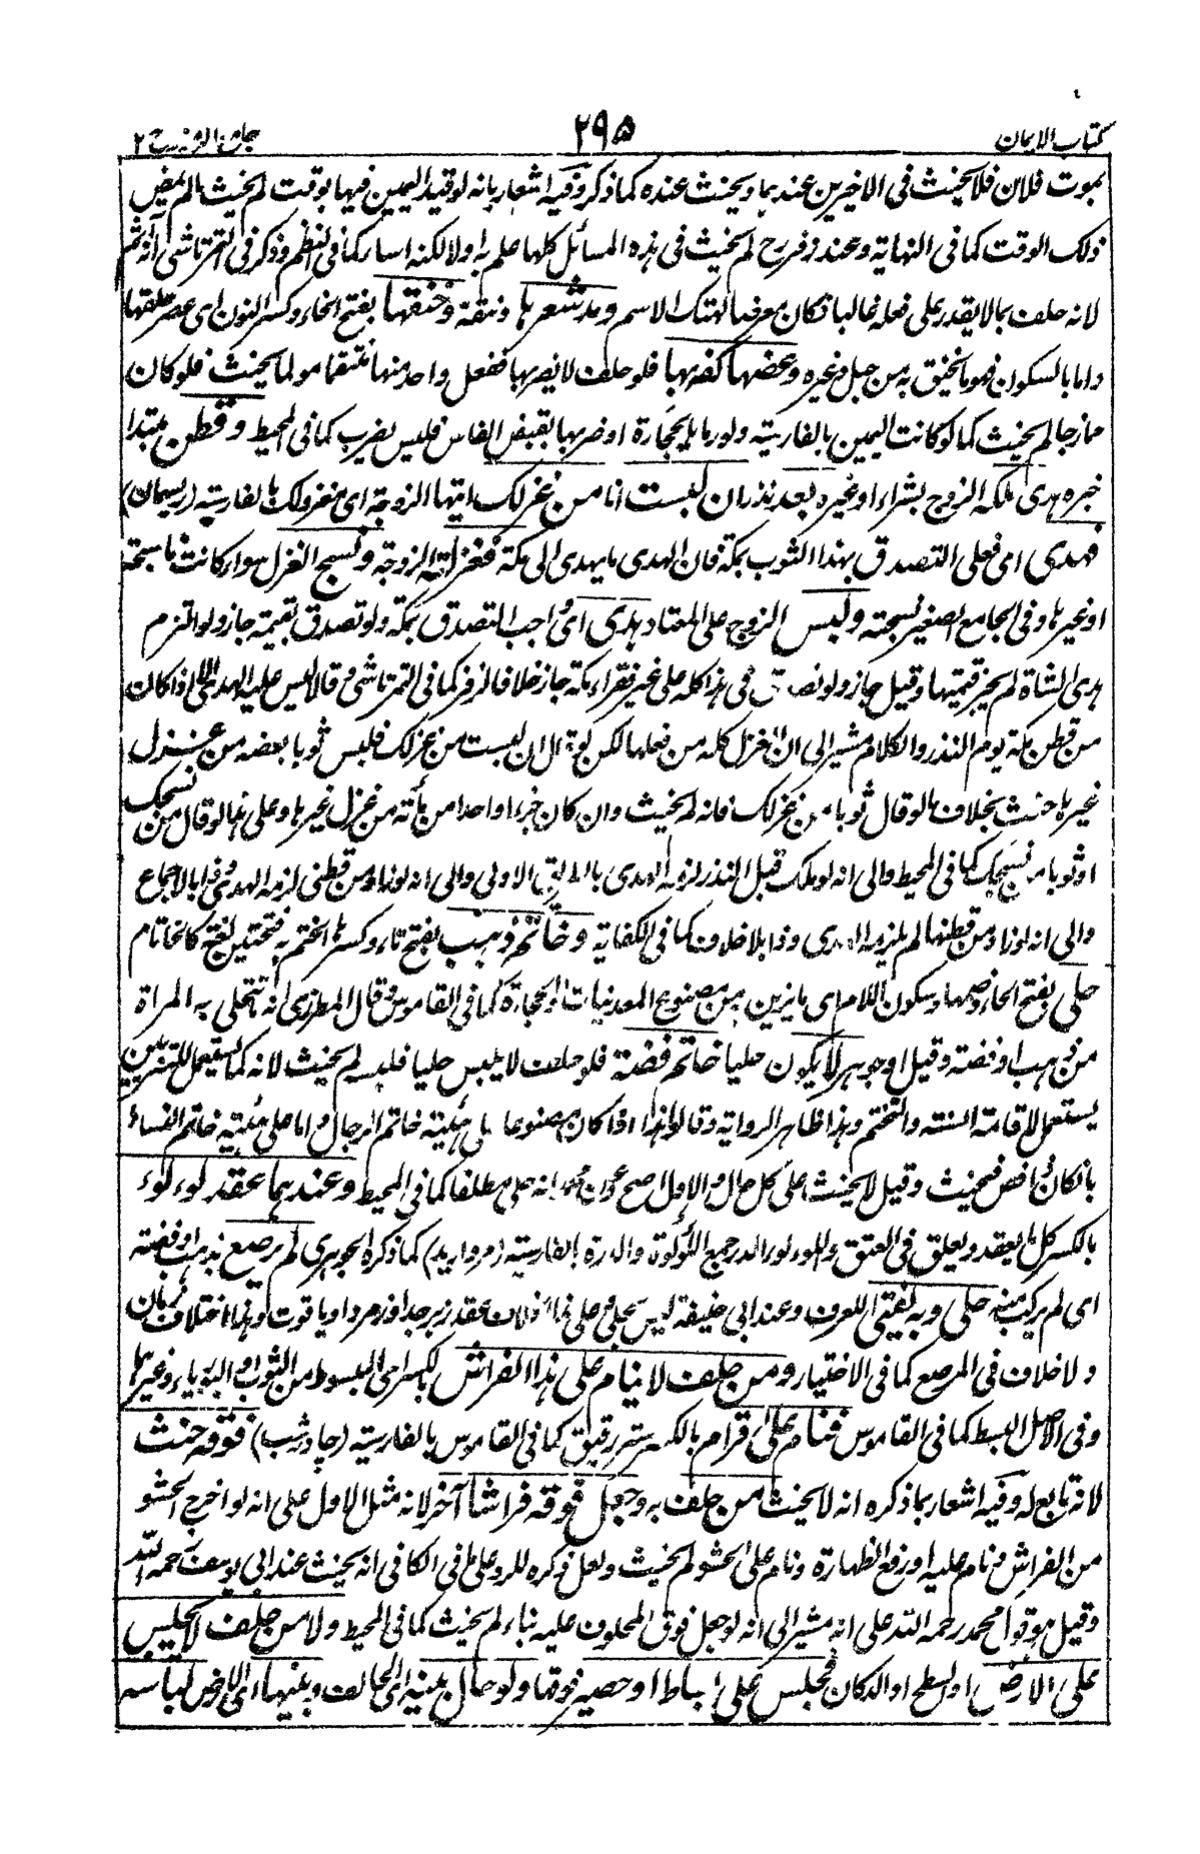 كتاب الايمان ٢٩٥ جامع الرموز ج ٢
بموت فلان فلا يحنث فى الاخيرين عندهما ويحنث عنده كما ذكر وفيه اشعار بانه لو قيد اليمين فيها بوقت لم يحنث ما لم يمض
ذلك الوقت كما فى النهاية وعند زفر رح لم يحنث فى هذه المسائل كلها علم به اولا لكنه اساء كما فى النظم وذكر فى التمرتاشى انه اثم
لانه حلف بما لا يقدر على فعله غالبا فكان معرضا لهتك الاسم ومد شعرها ونتفه وخنقها بفتح الخاء وكسر النون اى عصر حلقها
واما بالسكون فهو ما يخنق به من حبل وغيره وعضها كضربها فلو حلف لا يضربها ففعل واحد منها منتقما مولما يحنث فلو كان
مازحا لم يحنث كما لو كانت اليمين بالفارسية ولو رماها بحجارة او ضربها بقبض الفاس فليس بضرب كما فى المحيط وقطن مبتدا
خبره هدى ملكه الزوج بشراء او غيره بعد نذر ان لبست انا من غزلك ايتها الزوجة اى مغزولك بالفارسية (ريسمان)
فهدى اى فعلى التصدق بهذا الثوب بمكة فان الهدى ما يهدى الى مكة فغزلته الزوجة ونسج الغزل سواء كانت ناسجة
او غيرها وفى الجامع الصغير نسجته ولبس الزوج على المعتاد هدى اى واجب التصدق بمكة ولو تصدق بقيمته جاز ولو التزم
هدى الشاة لم يجز قيمتها وقيل جاز ولو تصدق فى هذا كله على غير فقراء مكة جاز خلافا لزفر كما فى التمرتاشى وقالا ليس عليه الهدى الا اذا كان
من قطن ملكه يوم النذر والكلام مشير الى ان الغزل كله من فعلها لكن لو قال ان لبست من غزلك فلبس ثوبا بعضه من غزل
غيرها حنث بخلاف ما لو قال ثوبا من غزلك فانه لم يحنث وان كان جزء واحدا من مأته من غزل غيرها وعلى هذا لو قال من نسجك
او ثوبا من نسجك كما فى المحيط والى انه لو ملك قبل النذر لزمه الهدى بالطريق الاولى والى انه لو زاد من قطنى لزمه الهدى وذا بالاجماع
والى انه لو زاد من قطنها لم يلزمه الهدى وذا بلا خلاف كما فى الكفاية وخاتم ذهب بفتح تاء وكسرها الختم به فتحتين لغة كالخاتام
حلى بفتح الحاء وضمها وسكون اللام اى ما يزين به من مصنوع المعدنيات او الحجارة كما فى القاموس وقال المطرزى انه ما تتحلى به المراة
من ذهب او فضة وقيل او جوهر لا يكون حليا خاتم فضة فلو حلف لا يلبس حليا فلبسه لم يحنث لانه كما يستعمل للتزيين
يستعمل لاقامة السنة والتختم وهذا ظاهر الرواية وقالوا هذا اذا كان مصنوعا على هيئة خاتم الرجال واما على هيئة خاتم النساء
بان كان ذا فص فيحنث وقيل لا يحنث على كل حال والاول اصح وعن محمد انه حلى مطلقا كما فى المحيط وعندهما عقد لؤلؤ
بالكسر كل ما يعقد ويعلق فى العنق واللؤلؤ الدر جمع اللؤلؤة والدرة بالفارسية (مرواريد) كما ذكره الجوهرى لم يرصع بذهب او فضة
اى لم يركب منه حلى وبه يفتى للعرف وعند ابى حنيفة ليس بحلى وعلى هذا الخلاف عقد زبرجد او زمرد او ياقوت وهذا اختلاف زمان
ولا خلاف فى المرصع كما فى الاختيار ومن حلف لا ينام على هذا الفراش بالكسر اى المبسوط من الثوب وغيرها
وفى الاصل البسط كما فى القاموس فنام على قرام بالكسر ستر رقيق كما فى القاموس بالفارسية (چادر شب) فوقه حنث
لانه تابع له وفيه اشعار بما ذكره انه لا يحنث من حلف به وجعل فوقه فراشا آخر لانه مثل الاول على انه لو اخرج الحشو
من الفراش ونام عليه او رفع الظهارة ونام على الحشو لم يحنث ولعل ذكره للرد على ما فى الكافى انه يحنث عند ابى يوسف رحمه الله
وقيل هو قول محمد رحمه الله على انه مشير الى انه لو جعل فوق المحلوف عليه بناء لم يحنث كما فى المحيط ولا من حلف لا يجلس
على الارض او السطح او الدكان فجلس على بساط او حصير فوقها ولو حال بينه اى الحالف وبينها اى الارض لباسه